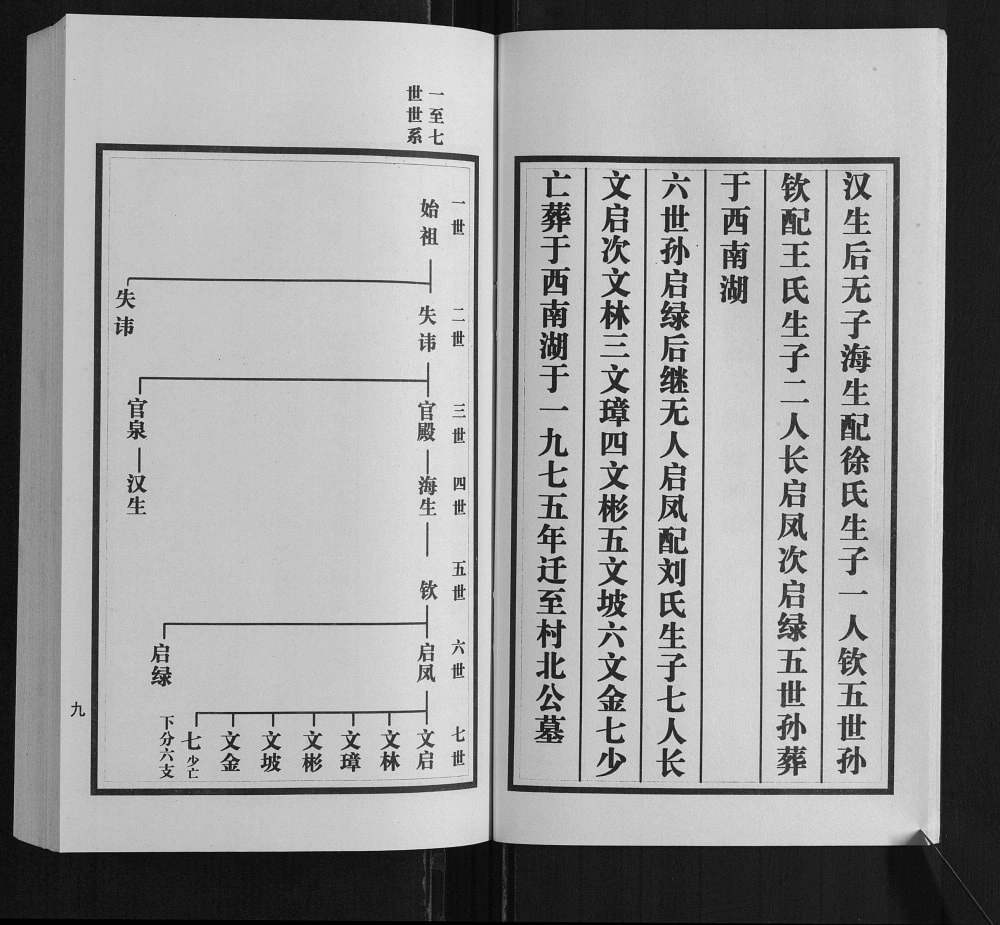 汉生后无子海生配徐氏生子一人钦五世孙
钦配王氏生子二人长启凤次启绿五世孙葬
于西南湖
六世孙启绿后继无人启凤配刘氏生子七人长
文启次文林三文璋四文彬五文坡六文金七少
亡葬于西南湖于一九七五年迁至村北公墓
一至七
世世系
一世
始祖
二世
失讳
失讳
三世
官殿
官泉
四世
海生
汉生
五世
钦
六世
启凤
启绿
七世
文启
文林
文璋
文彬
文坡
文金
七少亡
下分六支
九